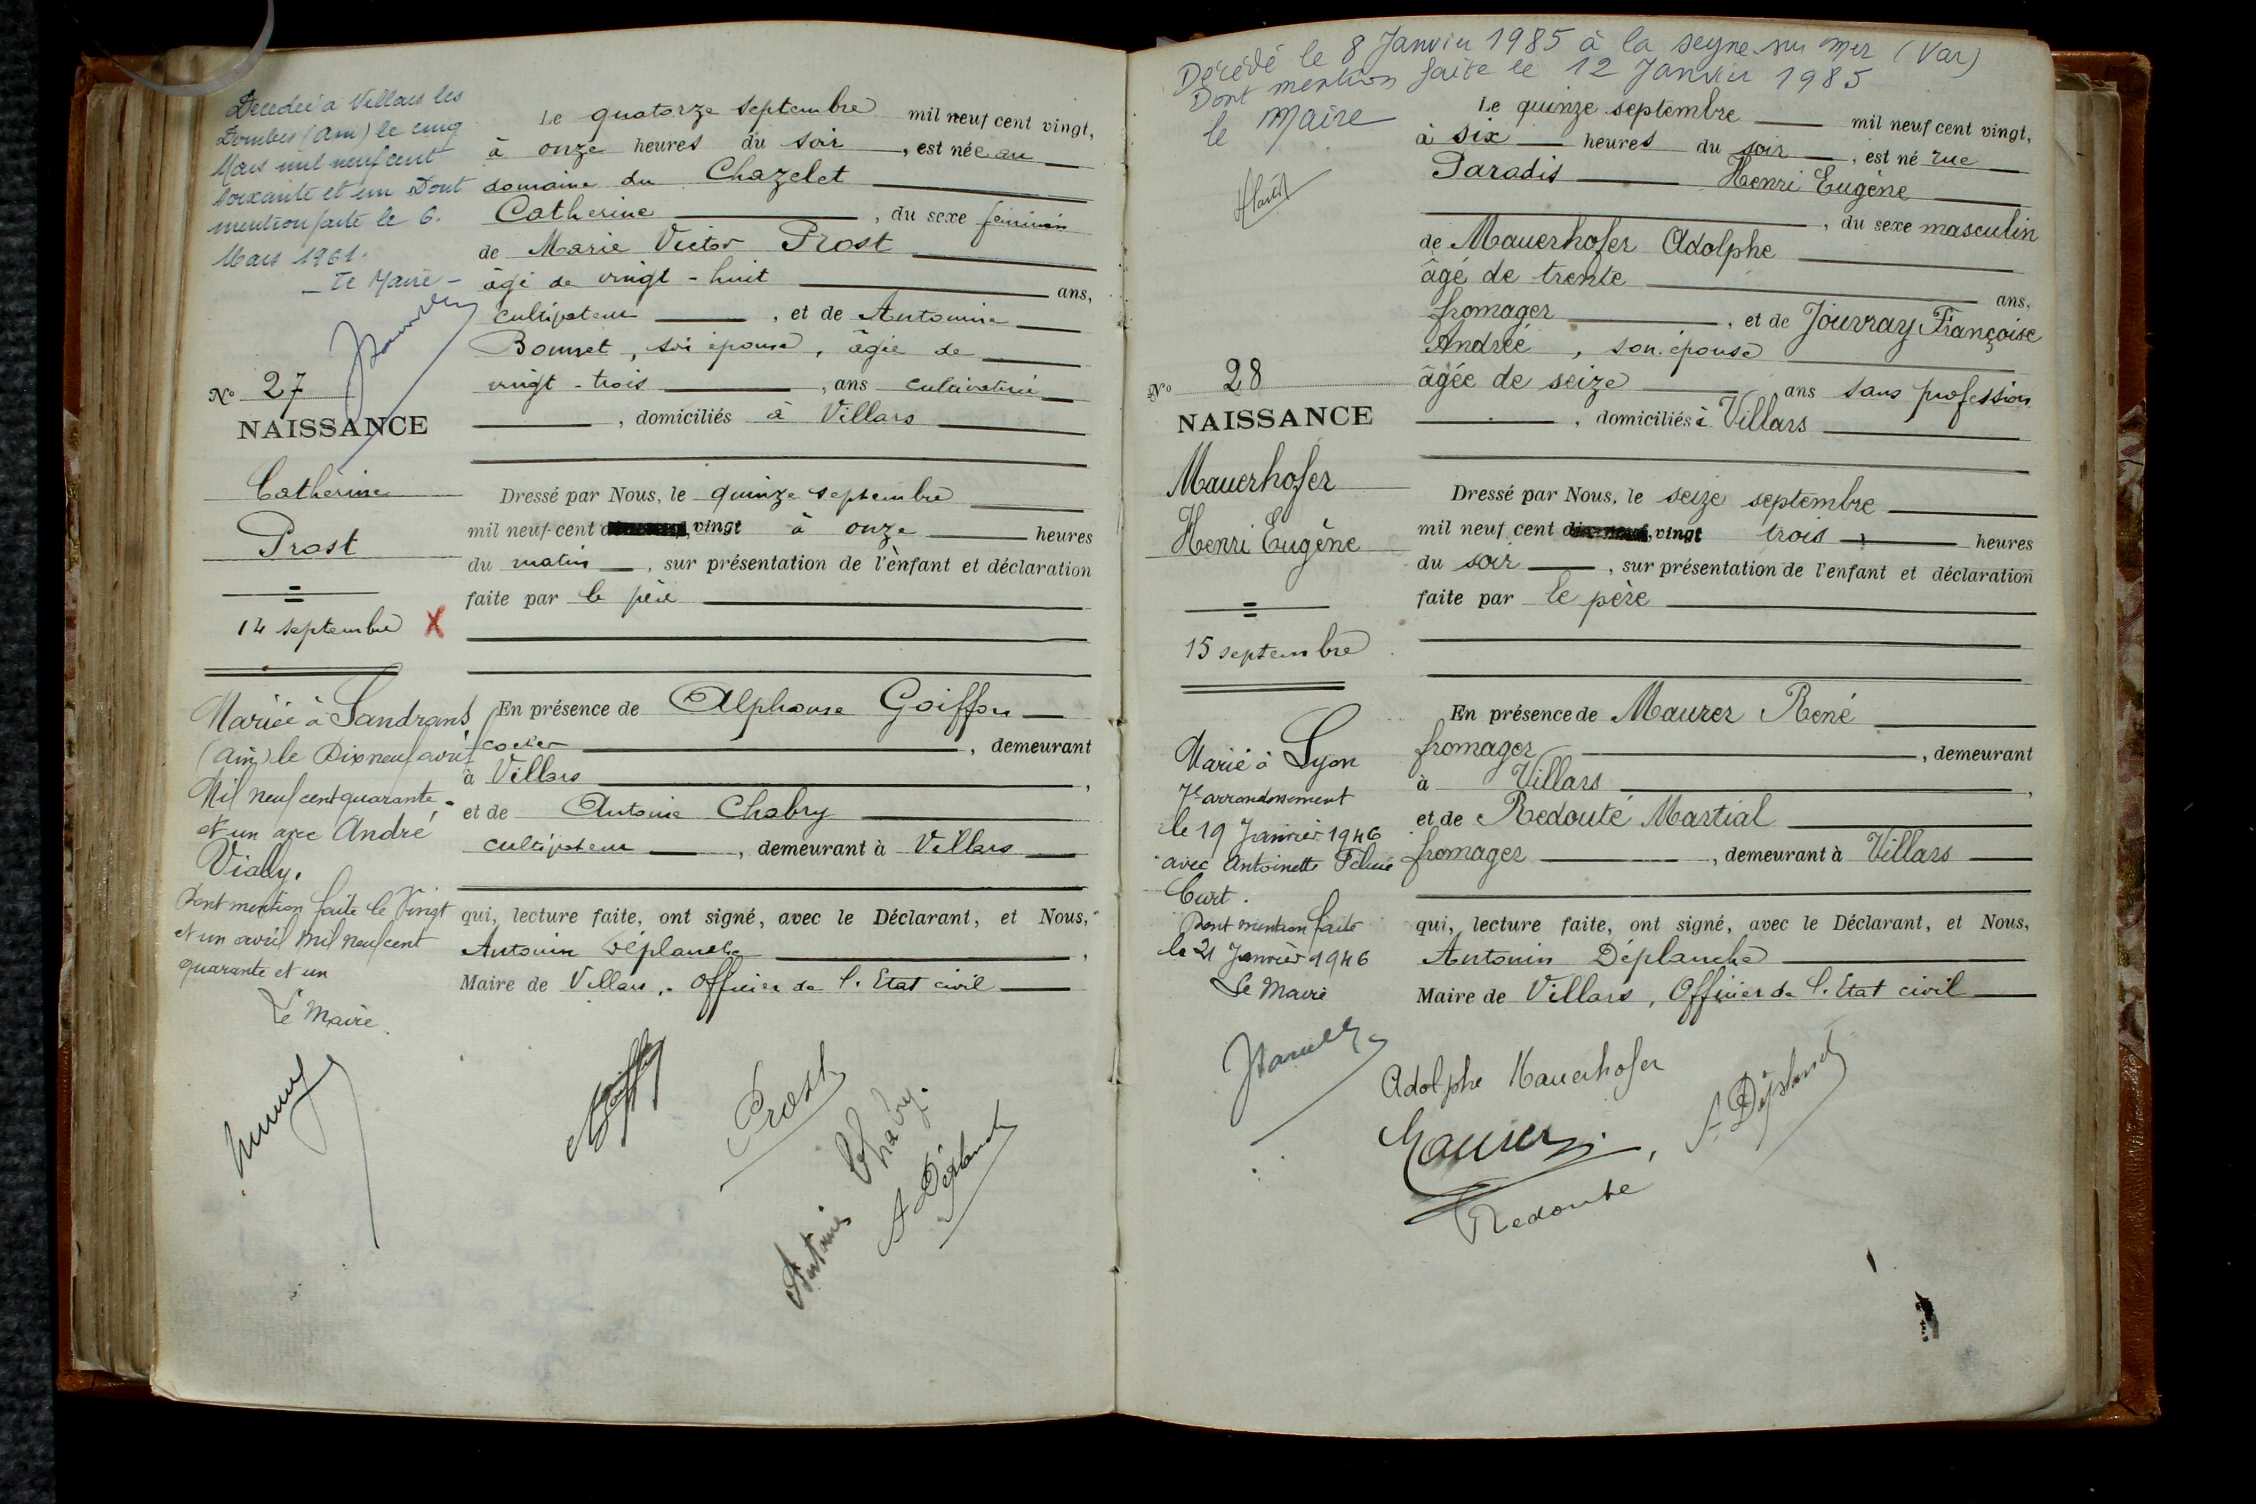 Décédée à Villars les
Dombes (Ain) le cinq
Mars mil neuf cent
soixante et un Dont
mention faite le 6.
Mars 1961.
_ Le Maire -
Nº 27
NAISSANCE
Catherine
Prost
14 septembre X
Mariée à Sandrans
(Ain) le Dix neuf avril
Mil neuf cent quarante
et un avec André
Vially.
Dont mention faite le Vingt
et un avril mil neuf cent
quarante et un
Le Maire.
Le quatorze septembre mil neuf cent vingt,
à onze heures du soir, est née au
domaine du Chazelet
Catherine, du sexe féminin
de Marie Victor Prost
âgé de vingt-huit ans,
cultivateur, et de Antonine
Bonnet, son épouse, âgée de
vingt-trois, ans cultivatrice
, domiciliés à Villars
Dressé par Nous, le quinze septembre
mil neuf cent vingt à onze heures
du matin, sur présentation de l'enfant et déclaration
faite par le père
En présence de Alphonse Goiffon
cocher, demeurant
à Villars,
et de Antoine Chabry
cultivateur, demeurant à Villars
qui, lecture faite, ont signé, avec le Déclarant, et Nous,
Antonin Déplanche,
Maire de Villars, Officier de l'Etat civil
Goiffon
Prost
Antoine Chabry.
A Déplanche
Décédé le 8 Janvier 1985 à la seyne sur mer (Var)
Dont mention faite le 12 Janvier 1985
le Maire
Nº 28
NAISSANCE
Mauerhofer
Henri Eugène
15 septembre
Marié à Lyon
7e arrondissement
le 19 Janvier 1946
avec Antoinette
Curt.
Dont mention faite
le 21 Janvier 1946
Le Maire
Le quinze septembre mil neuf cent vingt,
à six heures du soir, est né rue
Paradis Henri Eugène
, du sexe masculin
de Mauerhofer Adolphe
âgé de trente ans,
fromager, et de Jouvray Françoise
Andrée, son épouse
âgée de seize ans sans profession
, domiciliés à Villars
Dressé par Nous, le seize septembre
mil neuf cent vingt trois heures
du soir, sur présentation de l'enfant et déclaration
faite par le père
En présence de Maurer René
fromager, demeurant
à Villars,
et de Redouté Martial
fromager, demeurant à Villars
qui, lecture faite, ont signé, avec le Déclarant, et Nous,
Antonin Déplanche
Maire de Villars, Officier de l'Etat civil
Adolphe Mauerhofer
Maurer
A. Déplanche
Redouté